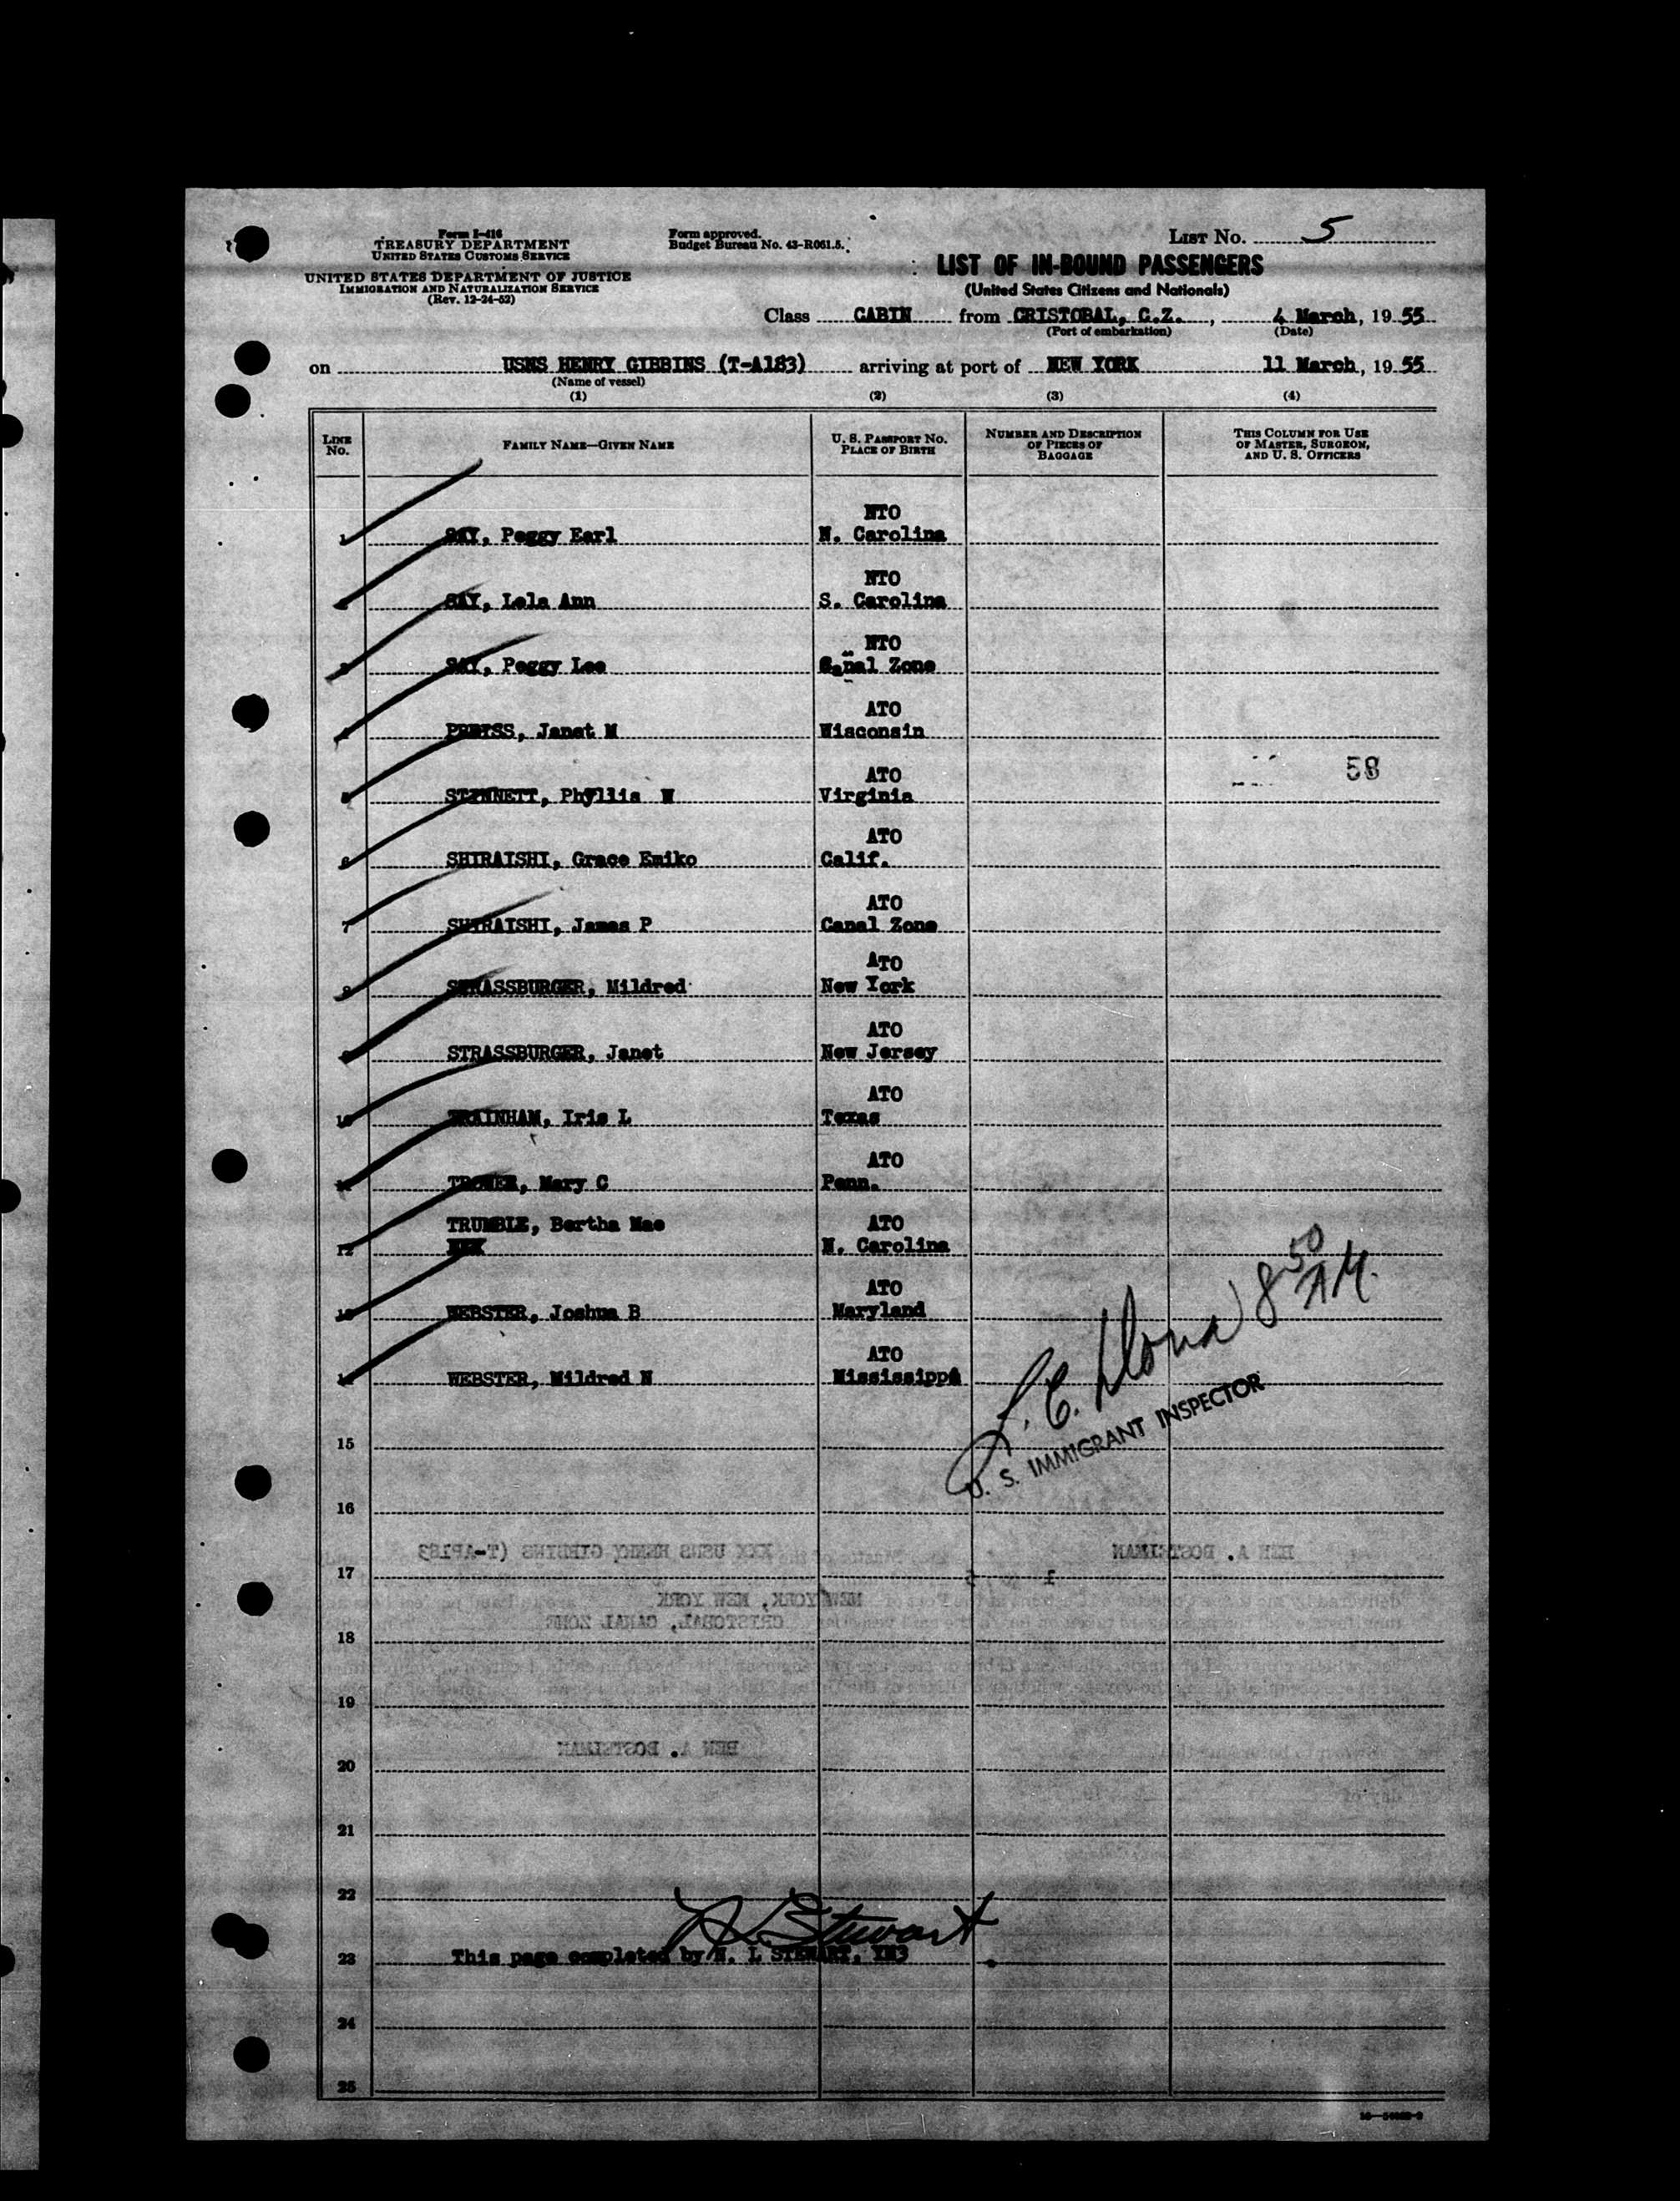 Form I-416
TREASURY DEPARTMENT
UNITED STATES CUSTOMS SERVICE
UNITED STATES DEPARTMENT OF JUSTICE
IMMIGRATION AND NATURALIZATION SERVICE
(Rev. 12-24-52)
Form approved.
Budget Bureau No. 43-R061.5.
LIST NO. 5
LIST OF IN-BOUND PASSENGERS
(United States Citizens and Nationals)
Class CABIN from CRISTOBAL, C.Z., 4 March, 1955
(Port of embarkation) (Date)
on USNS HENRY GIBBINS (T-A183) arriving at port of NEW YORK 11 March, 1955
(Name of vessel)
(1) (2) (3) (4)
LINE NO. FAMILY NAME—GIVEN NAME U. S. PASSPORT NO. PLACE OF BIRTH NUMBER AND DESCRIPTION OF PIECES OF BAGGAGE THIS COLUMN FOR USE OF MASTER, SURGEON, AND U. S. OFFICERS
NTO
1 SAY, Peggy Earl N. Carolina
NTO
SAY, Lela Ann S. Carolina
NTO
SAY, Peggy Lee Canal Zone
ATO
PREISS, Janet M Wisconsin
58
ATO
STINNETT, Phyllis W Virginia
ATO
6 SHIRAISHI, Grace Emiko Calif.
ATO
7 SHIRAISHI, James P Canal Zone
ATO
STRASSBURGER, Mildred New York
ATO
9 STRASSBURGER, Janet New Jersey
ATO
10 Iris L Texas
ATO
Mary C Penn.
TRUMBLE, Bertha Mae ATO
12 XXX N. Carolina
ATO
13 WEBSTER, Joshua B Maryland
ATO
14 WEBSTER, Mildred N Mississippi
8 50 AM.
U. S. IMMIGRANT INSPECTOR
15
16
XXX USNS HENRY GIBBINS (T-AP183 BEN A. BOSTELMAN
17
NEW YORK, NEW YORK
CRISTOBAL, CANAL ZONE
18
19
BEN A. BOSTELMAN
20
21
22
N L Stewart
23 This page completed by N. L STEWART, YN3
24
25